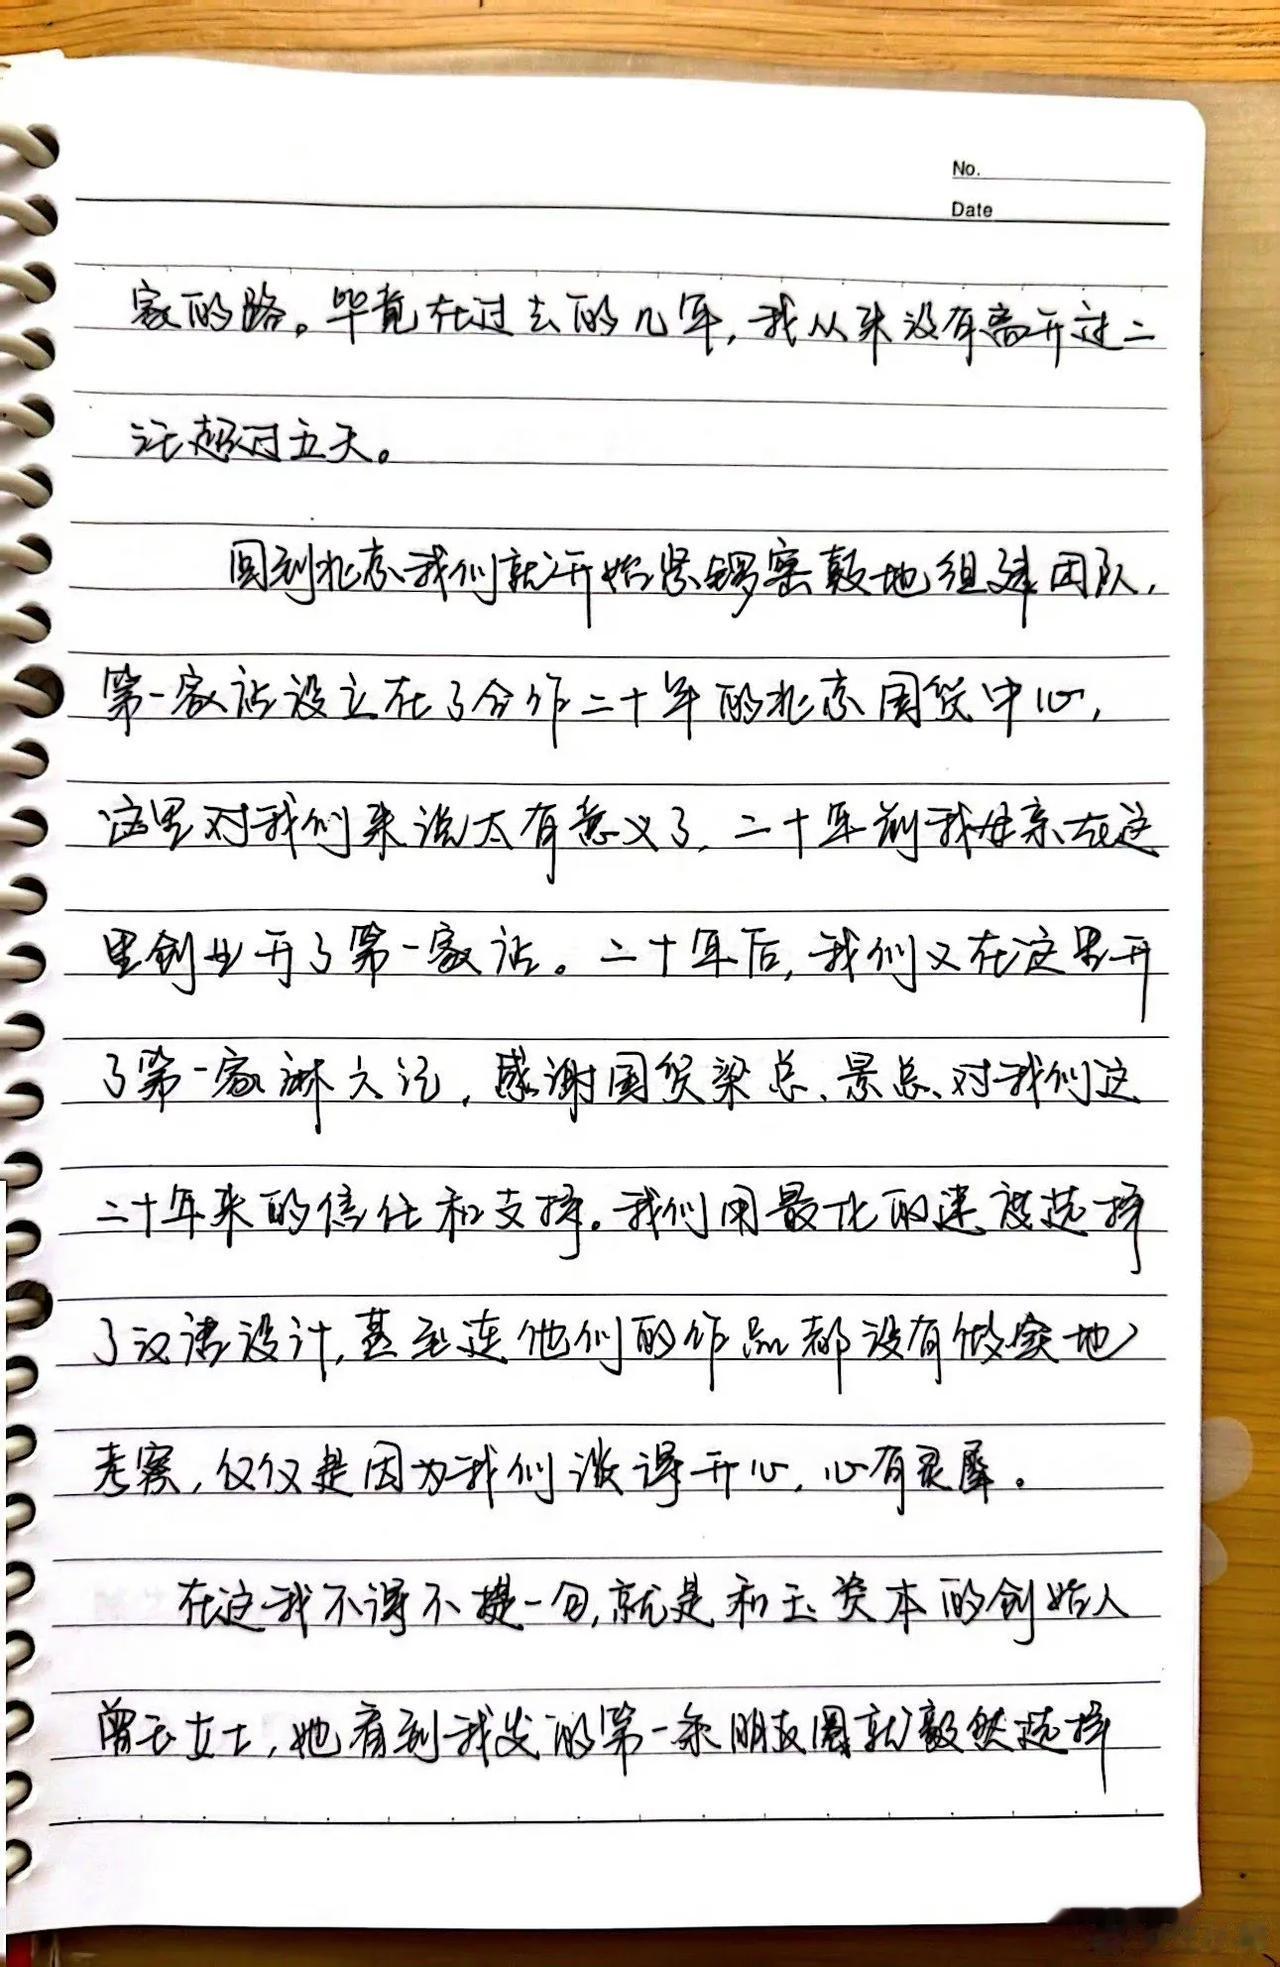 No.
Date
家的路。毕竟在过去的几年,我从来没有离开过二
汪超过五天。
回到北京我们就开始紧锣密鼓地组建团队,
第一家店设立在了合作二十年的北京国贸中心,
这里对我们来说太有意义了,二十年前我母亲在这
里创业开了第一家店。二十年后,我们又在这里开
了第一家麻六记,感谢国贸梁总、景总、对我们这
二十年来的信任和支持。我们用最快的速度选择
了汉诺设计,甚至连他们的作品都没有做实地
考察,仅仅是因为我们谈得开心,心有灵犀。
在这我不得不提一句,就是和玉资本的创始人
曾玉女士,她看到我发的第一条朋友圈就毅然选择